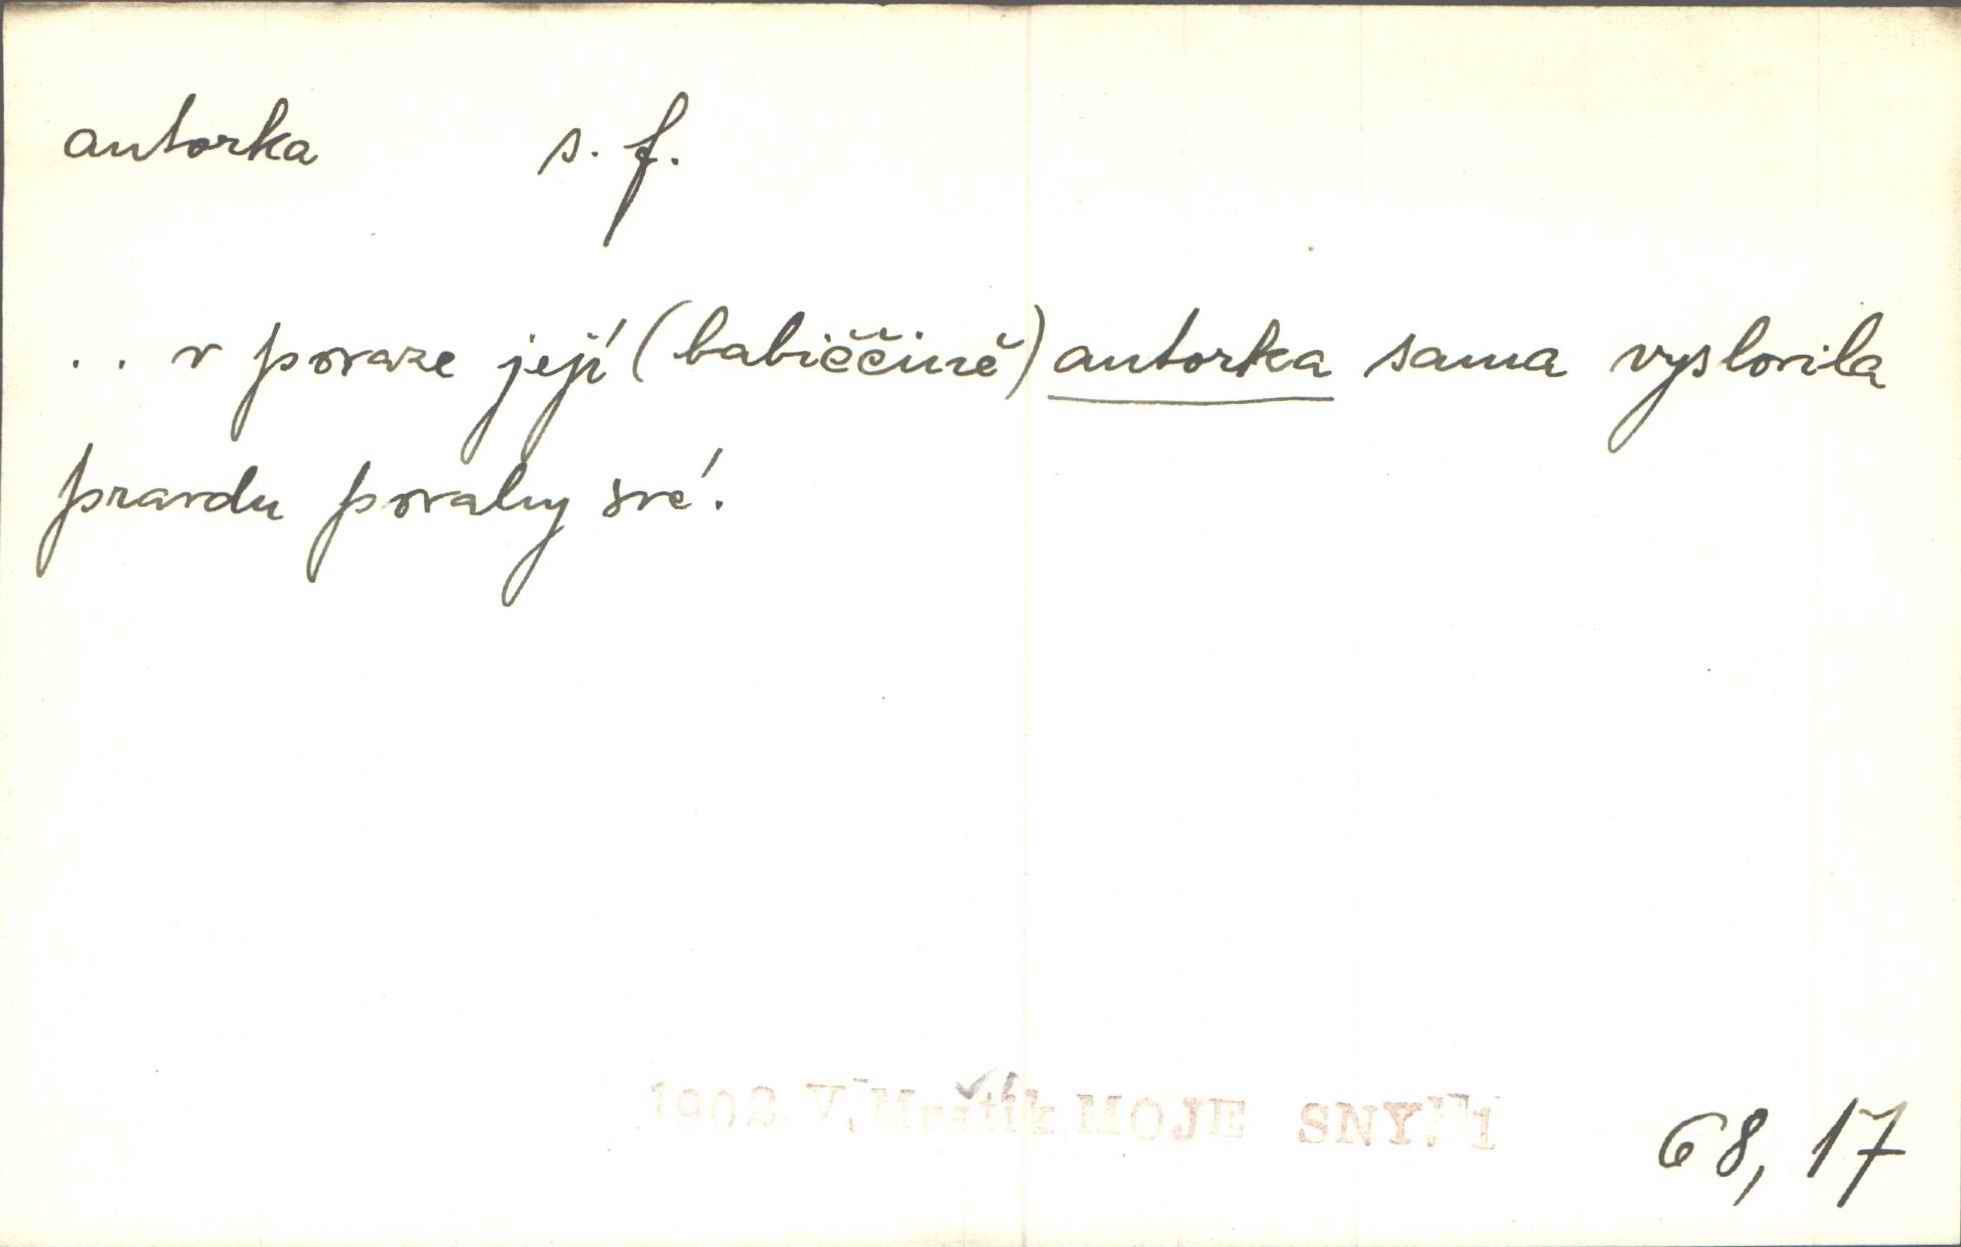 autorka s. f.
.. v povaze její (babiččině) autorka sama vyslovila
pravdu povahy své.
1902 V. Mrštík MOJE SNY. 1
68, 17